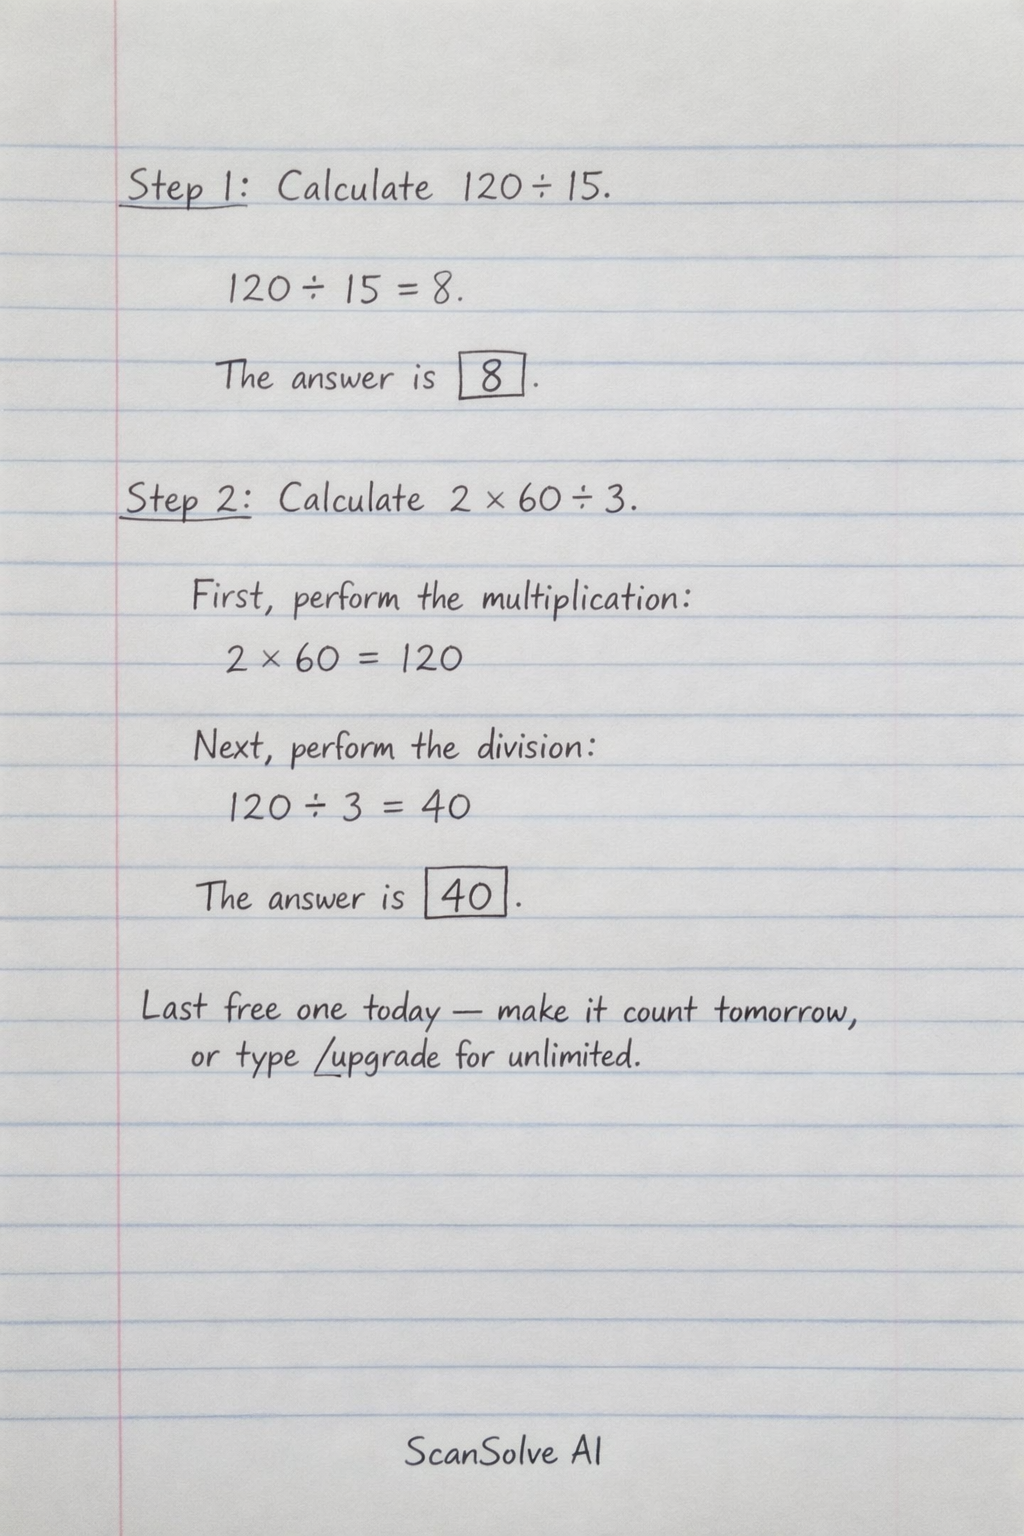 Step 1: Calculate 120 ÷ 15.
120 ÷ 15 = 8.
The answer is 8.
Step 2: Calculate 2 × 60 ÷ 3.
First, perform the multiplication:
2 × 60 = 120
Next, perform the division:
120 ÷ 3 = 40
The answer is 40.
Last free one today — make it count tomorrow,
or type /upgrade for unlimited.
ScanSolve AI